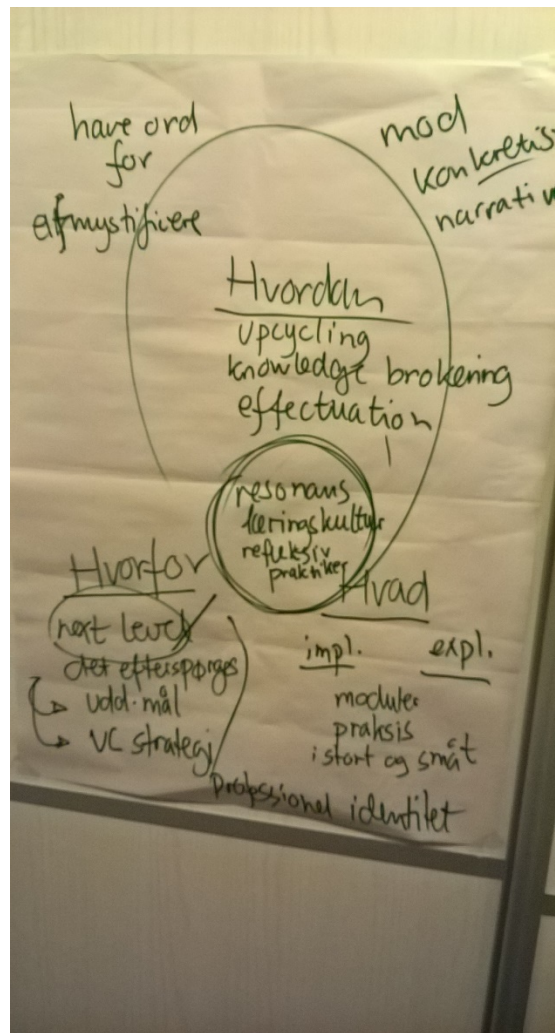 have ord
for
afmystificere
mod
konkretis
narrativ
Hvordan
upcycling
knowledge brokering
effectuation
resonans
læringskultur
refleksiv
praktiker
Hvorfor
next level
det efterspørges
udd. mål
VC strategi
Hvad
impl. expl.
moduler
praksis
i stort og småt
professionel identitet